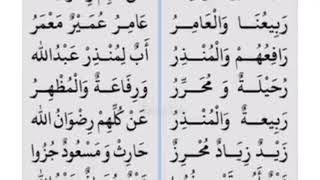 رَبِيعُنَا وَالْعَامِرُ عَامِرُ عُمَيْرٌ مَعْمَرُ
رَافِعُهُمْ وَالْمُنْذِرُ أَبٌ لِمُنْذِرْ عَبْدُالله
رُحَيْلَةٌ وَ مُحَرِّرُ وَرِفَاعَةٌ وَالْمُظْهِرُ
رَبِيعةٌ وَالْمُنْذِرُ عَنْ كُلِّهِمْ رِضْوَانُ الله
زَيْدٌ زِيَادٌ مُحْرِزٌ حَارِثْ وَمَسْعُودٌ جُزُوا